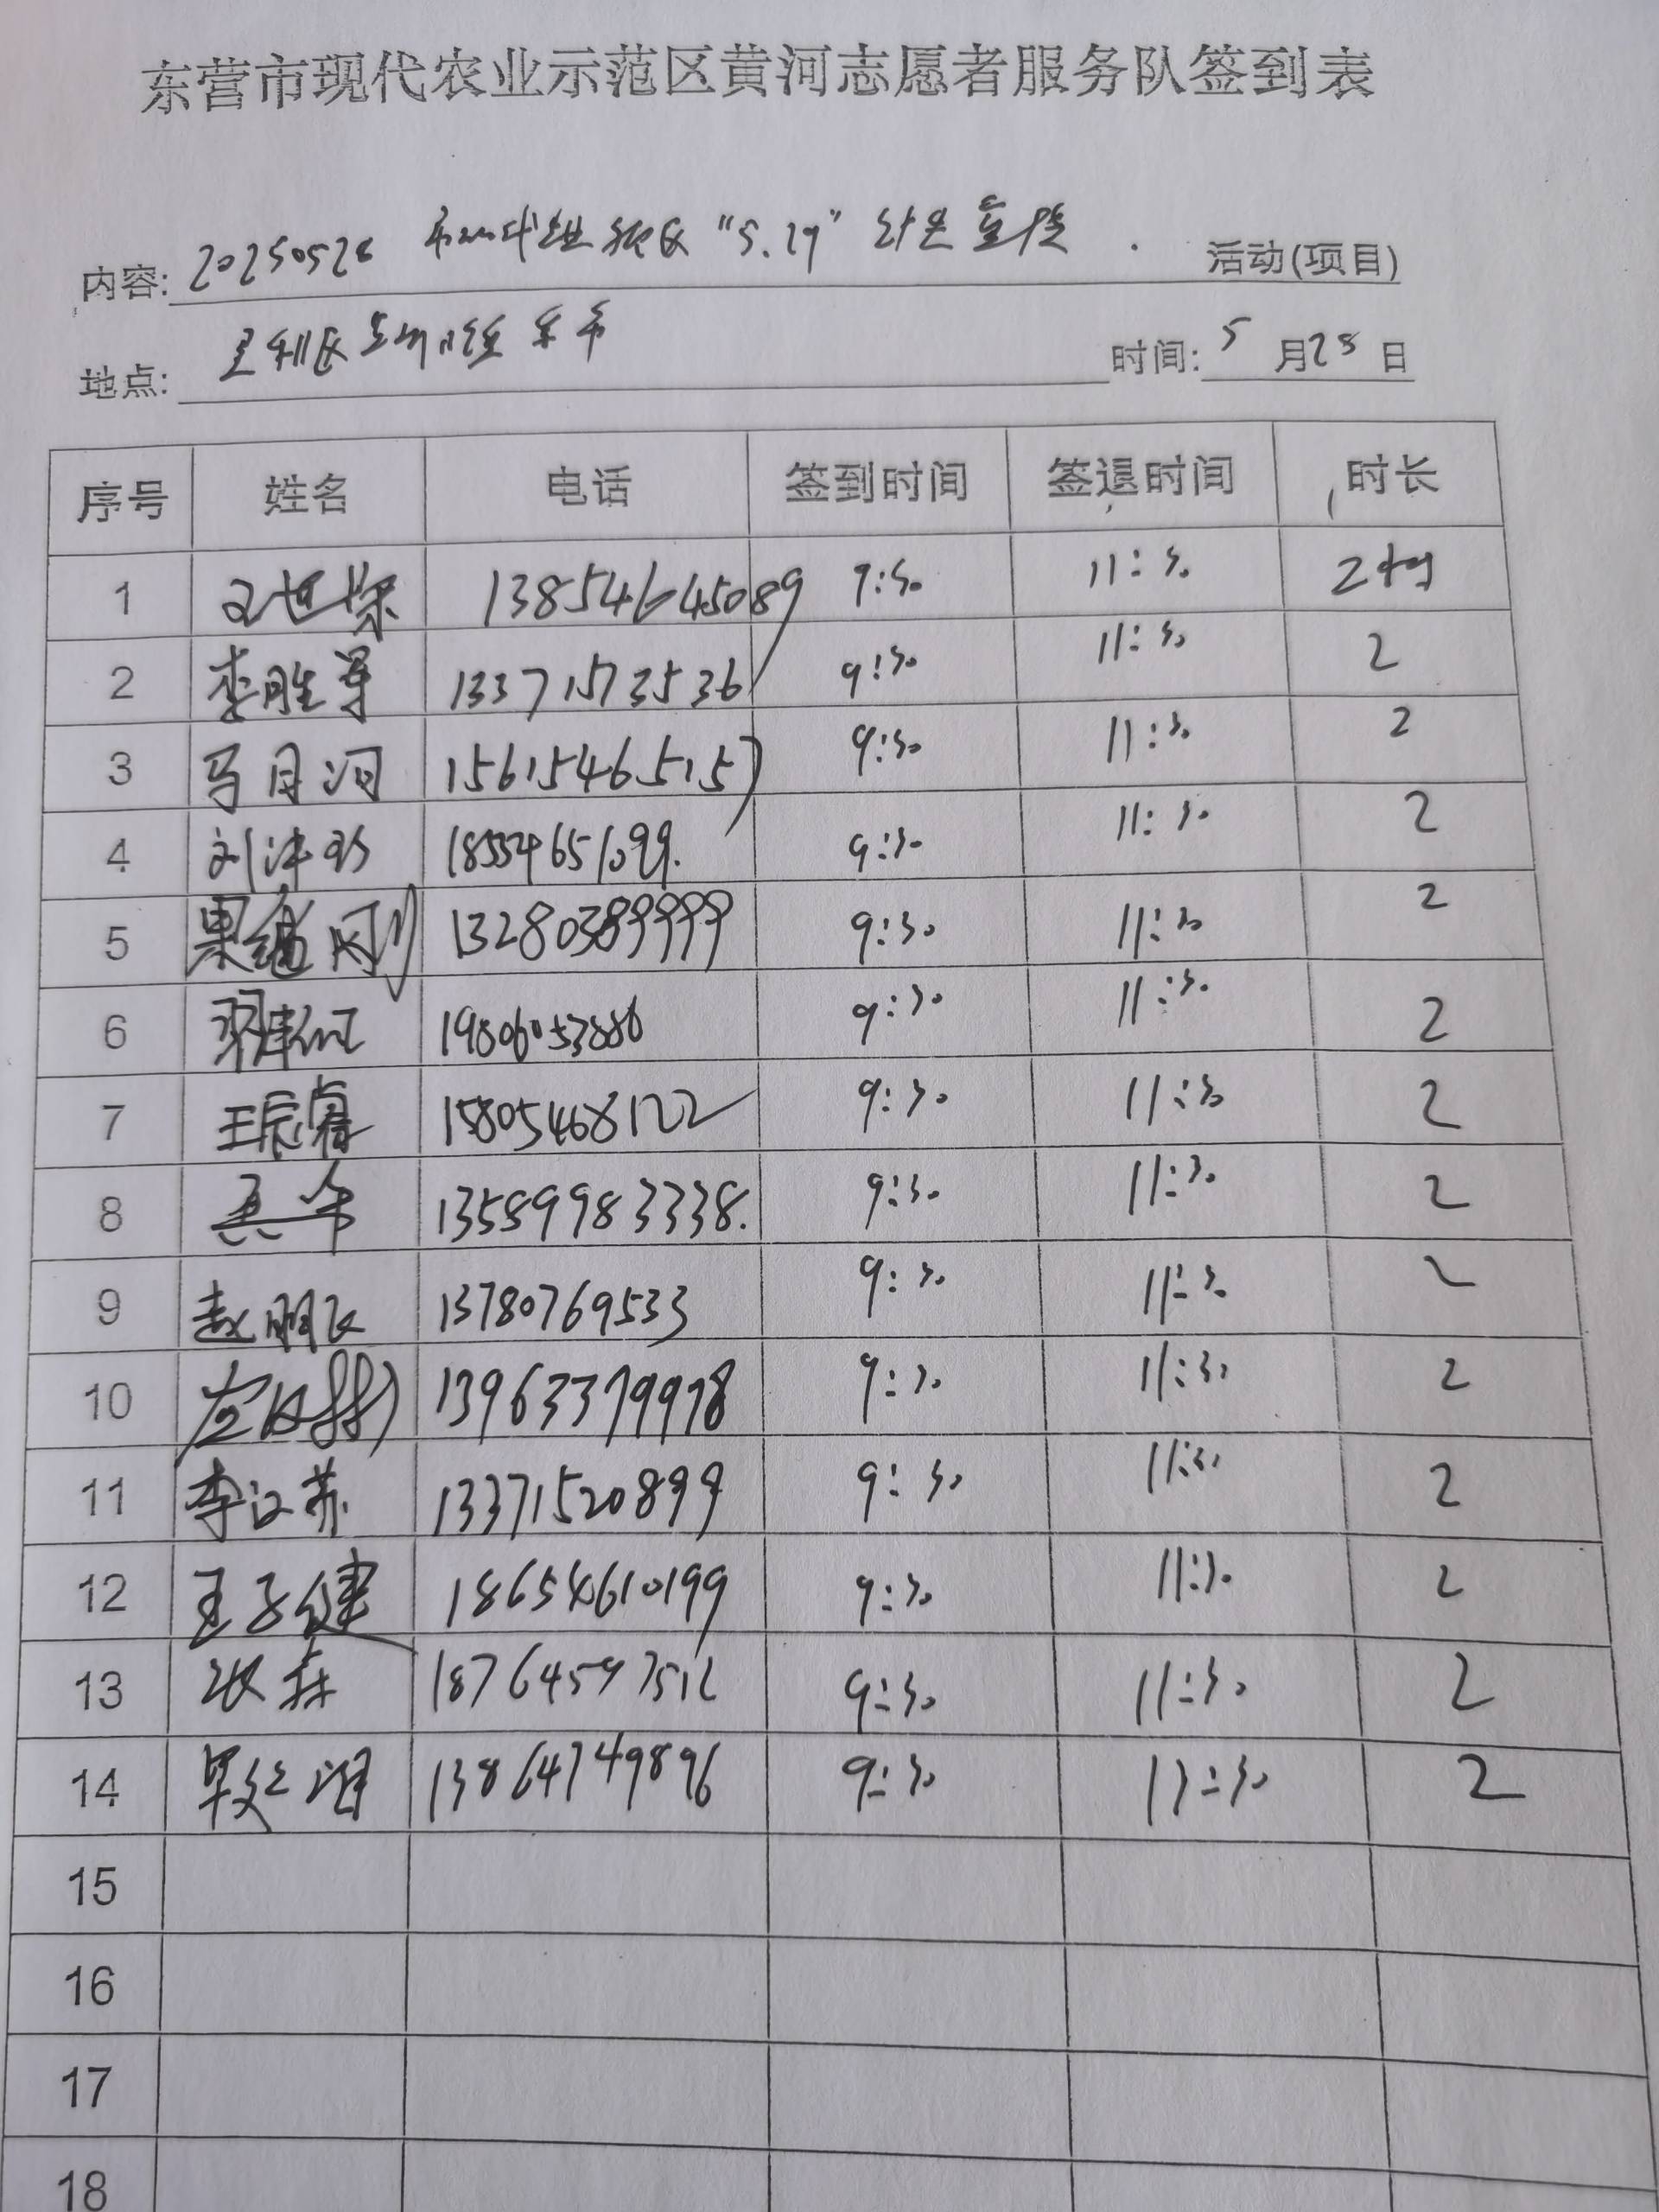 东营市现代农业示范区黄河志愿者服务队签到表
内容: 20250528 "5.29" 活动(项目)
地点: 垦利区 时间: 5 月 28 日
序号 姓名 电话 签到时间 签退时间 时长
1 13854645089 9:30 11:30 2小时
2 李胜军 13371573536 9:30 11:30 2
3 马月河 15615465157 9:30 11:30 2
4 18554651099. 9:30 11:30 2
5 果继刚 13280389999 9:30 11:30 2
6 19806053886 9:30 11:30 2
7 王辰睿 15805468122 9:30 11:30 2
8 13589983338. 9:30 11:30 2
9 赵明飞 13780769533 9:30 11:30 2
10 13963379998 9:30 11:30 2
11 李汉苏 13371520899 9:30 11:30 2
12 王子健 18654610199 9:30 11:30 2
13 张森 18764597512 9:30 11:30 2
14 13864749896 9:30 11:30 2
15
16
17
18